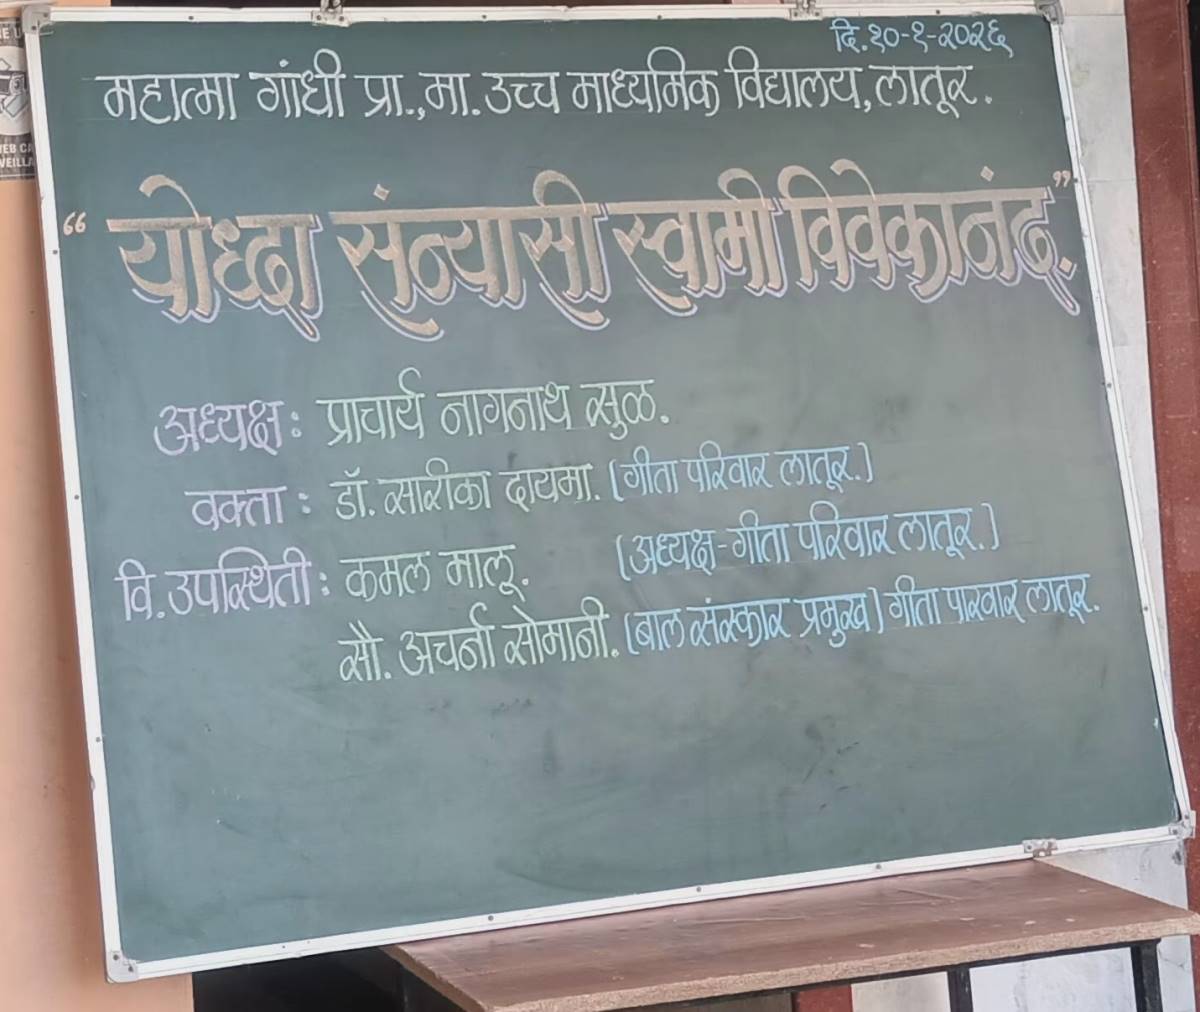 दि.१०-१-२०२६
महात्मा गांधी प्रा.,मा.उच्च माध्यमिक विद्यालय,लातूर.
“योध्दा संन्यासी स्वामी विवेकानंद.”
अध्यक्ष: प्राचार्य नागनाथ सुळ.
वक्ता: डॉ. सारीका दायमा. [गीता परिवार लातूर.]
वि.उपस्थिती: कमल मालू. [अध्यक्ष-गीता परिवार लातूर.]
सौ. अचर्ना सोमानी. [बाल संस्कार प्रमुख] गीता परिवार लातूर.